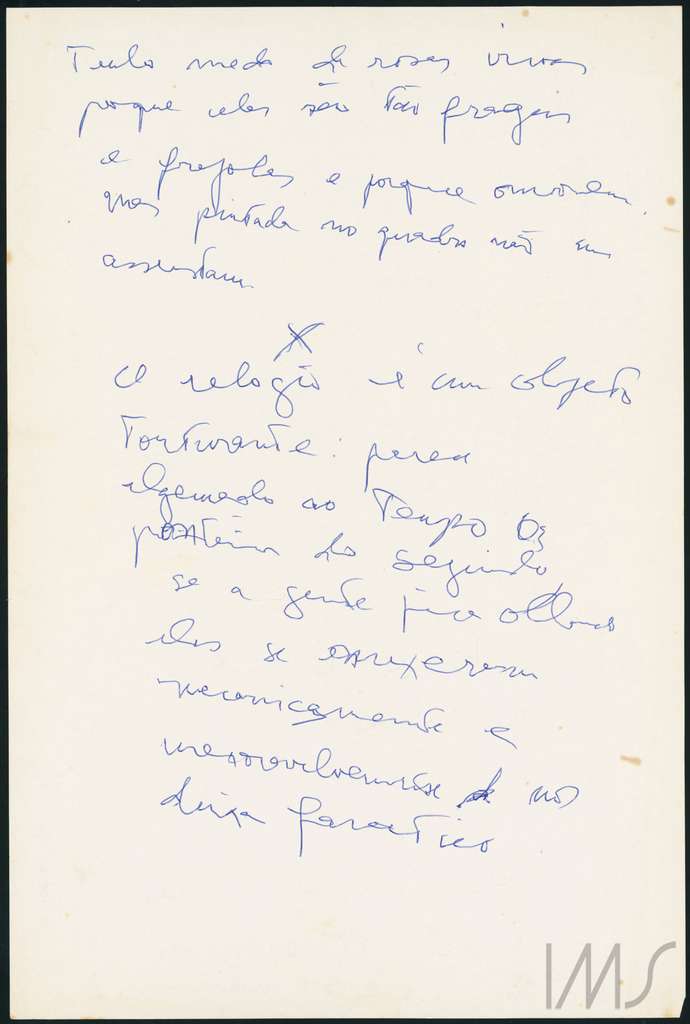 Tenho medo de rosas vivas
porque elas são tão frageis
e porque amarelam.
mas pintada no quadro não me
assustam.
X
O relogio é um objeto
torturante: parece
algemado ao Tempo Os
ponteiros do segundo,
se a gente fica olhando
eles se
mecanicamente e
inexoravelmente nos
deixa
IMS